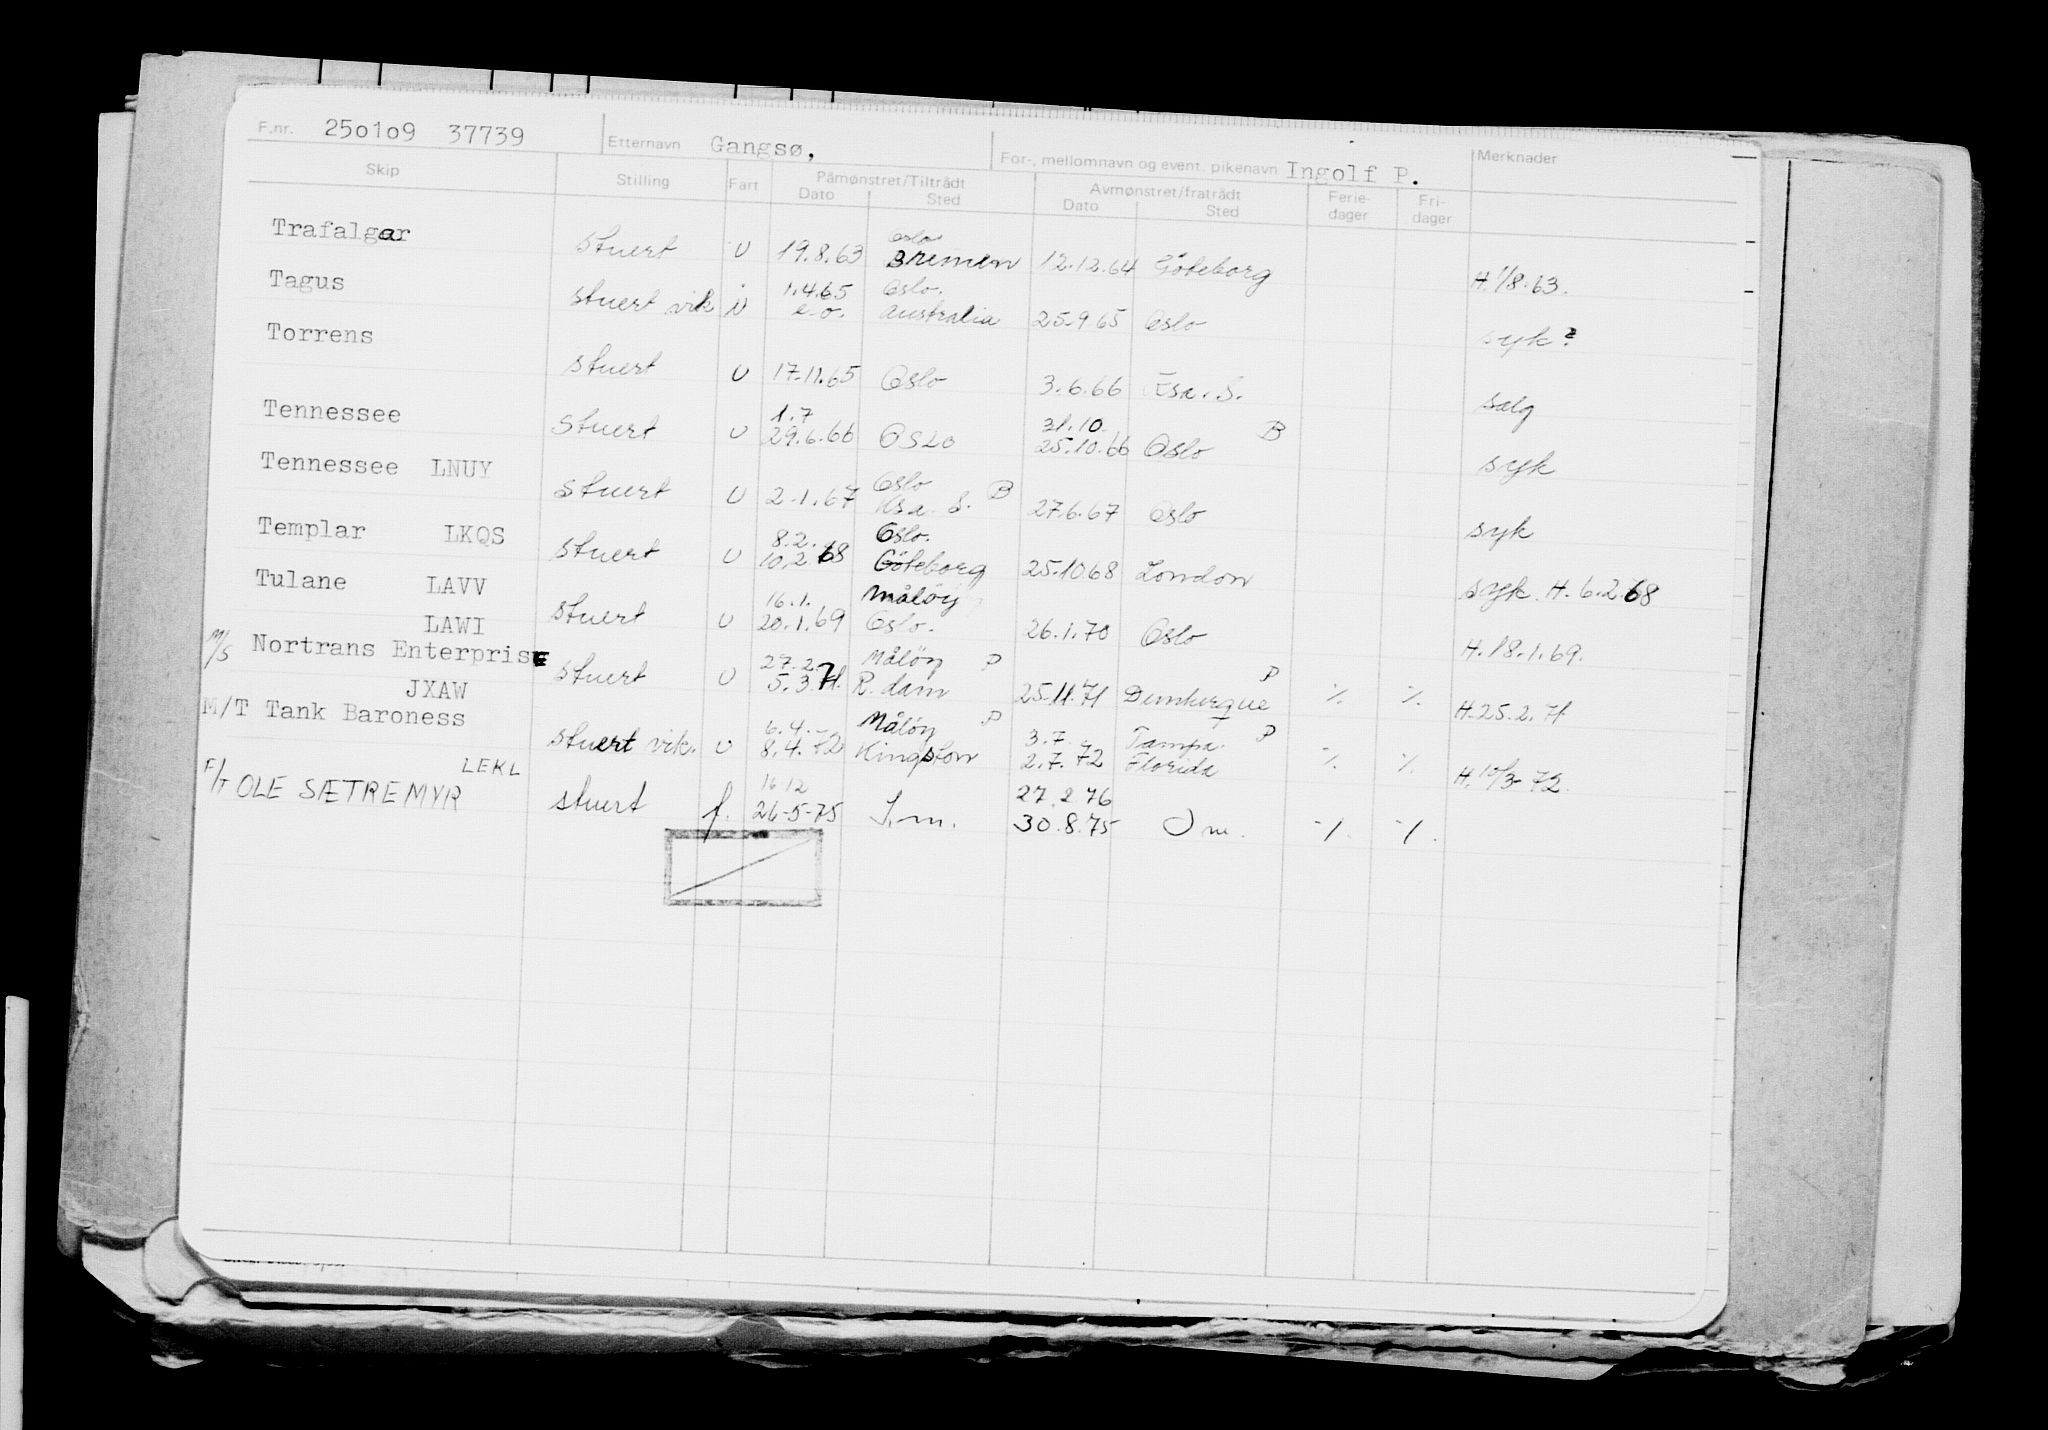 F.nr. 250109 37739 Etternavn Gangsø, For-, mellomnavn og event. pikenavn Ingolf P. Merknader
Skip Stilling Fart Påmønstret/Tiltrådt Avmønstret/fratrådt Ferie- Fri-
Dato Sted Dato Sted dager dager
Oslo
Trafalgar stuert U 19.8.63 Bremen 12.12.64 Göteborg H. 1/8.63.
1.4.65 Oslo.
Tagus stuert vik U e.o. Australia 25.9.65 Oslo syk?
Torrens stuert U 17.11.65 Oslo 3.6.66 Ksa. S. salg
1.7 31.10. B
Tennessee stuert U 29.6.66 OSLO 25.10.66 Oslo syk
Oslo B
Tennessee LNUY stuert U 2.1.67 Ksa. S. 27.6.67 Oslo syk
8.2. Oslo.
Templar LKQS stuert U 10.2.68 Göteborg 25.10.68 London syk. H. 6.2.68
16.1. Måløy
Tulane LAVV stuert U 20.1.69 Oslo. 26.1.70 Oslo H. 18.1.69.
LAWI 27.2. Måløy P P
M/S Nortrans Enterprise stuert U 5.3.71. R.dam 25.11.71 Dunkerque % % H. 25.2.71
JXAW 6.4. Måløy P 3.7. Tampa. P
M/T Tank Baroness stuert vik. U 8.4.72 Kingston 2.7.72 Florida % % H. 10/3-72.
LEKL 16.12 27.2.76
F/T OLE SÆTREMYR stuert f. 26-5-75 I.m. 30.8.75 I m. -/. -/.